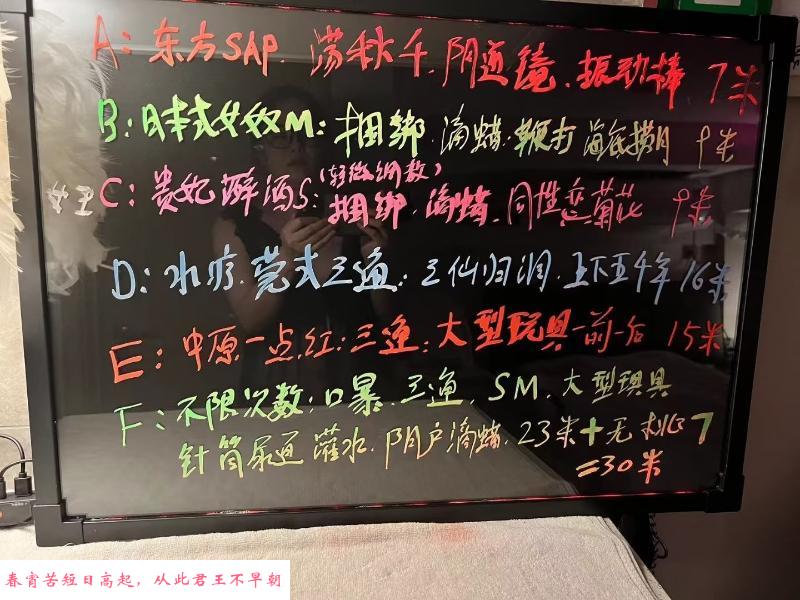 A: 东方SAP. 荡秋千. 阴道镜. 振动棒 7米
B: 日本式女奴M: 捆绑. 滴蜡. 鞭打 海底捞月 9米
C: 贵妃醉酒S: (轻微调教) 捆绑. 滴蜡. 同性恋菊花 9米
D: 水疗. 莞式三通: 三仙归洞. 上下五千年 16米
E: 中原一点红: 三通: 大型玩具一前一后 15米
F: 不限次数: 口暴. 三通. SM. 大型玩具
针筒尿道灌水. 阴户滴蜡. 23米+无 7
=30米
春宵苦短日高起，从此君王不早朝